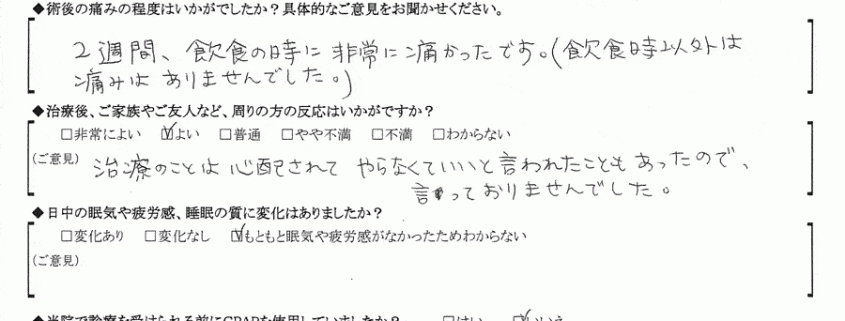 ◆術後の痛みの程度はいかがでしたか？具体的なご意見をお聞かせください。
2週間、飲食の時に非常に痛かったです。(飲食時以外は
痛みはありませんでした。)
◆治療後、ご家族やご友人など、周りの方の反応はいかがですか？
□非常によい ☑よい □普通 □やや不満 □不満 □わからない
(ご意見) 治療のことは心配されてやらなくていいと言われたこともあったので、
言っておりませんでした。
◆日中の眠気や疲労感、睡眠の質に変化はありましたか？
□変化あり □変化なし ☑もともと眠気や疲労感がなかったためわからない
(ご意見)
◆当院で診療を受けられる前にCPAPを使用していましたか？ □はい ☑いいえ